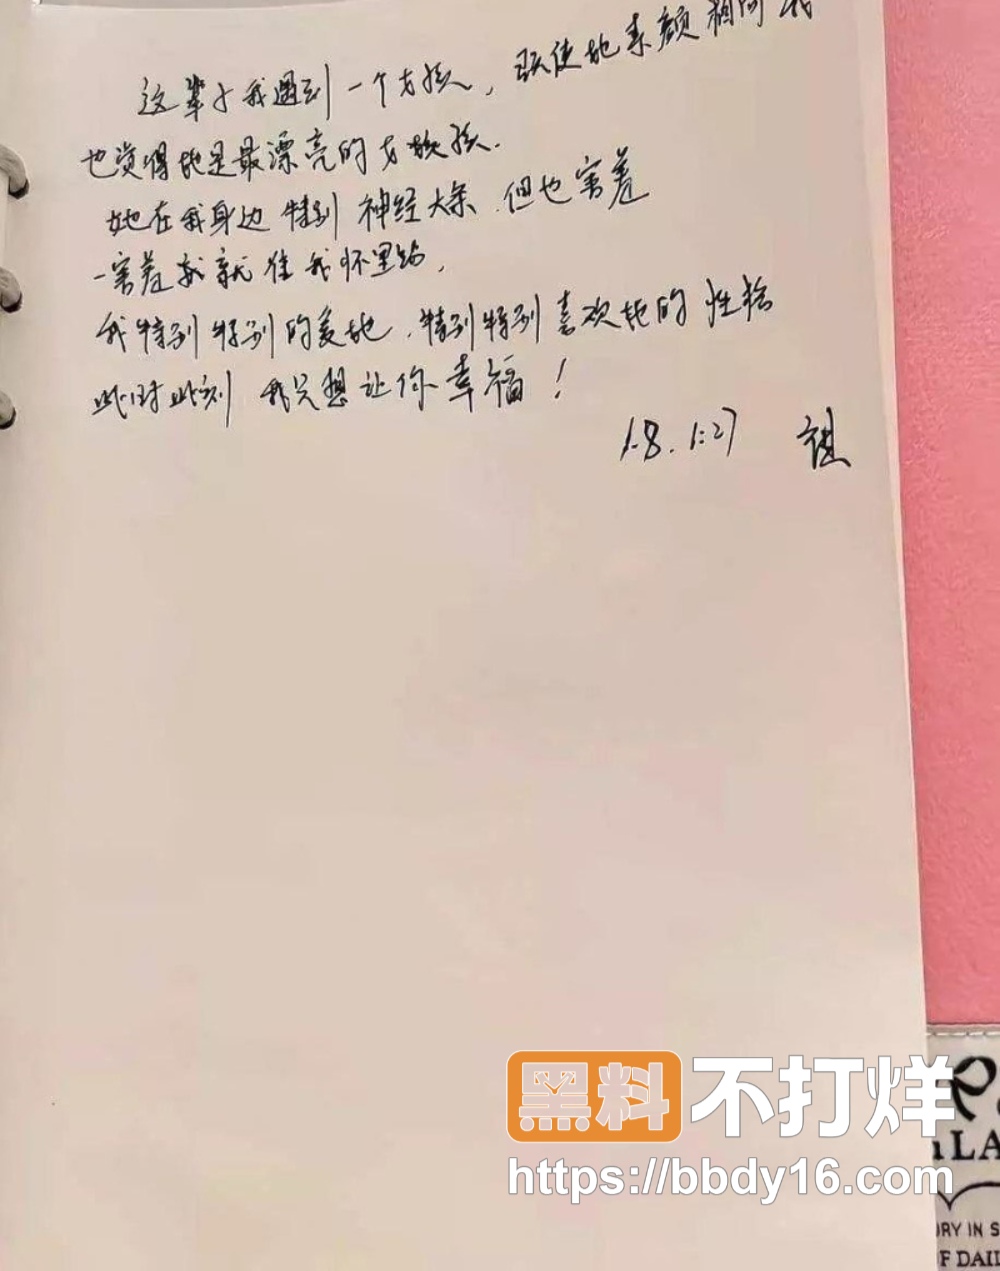 这辈子我遇到一个女孩，既使她素颜相向我
也觉得她是最漂亮的女孩.
她在我身边 特别 神经大条.但也害羞
一害羞 就 往我怀里钻，
我特别特别的爱她.特别特别喜欢她的性格
此时此刻 我只想让你幸福！
1.8. 1:27
黑料不打烊
https://bbdy16.com
LA
RY IN S
F DAI